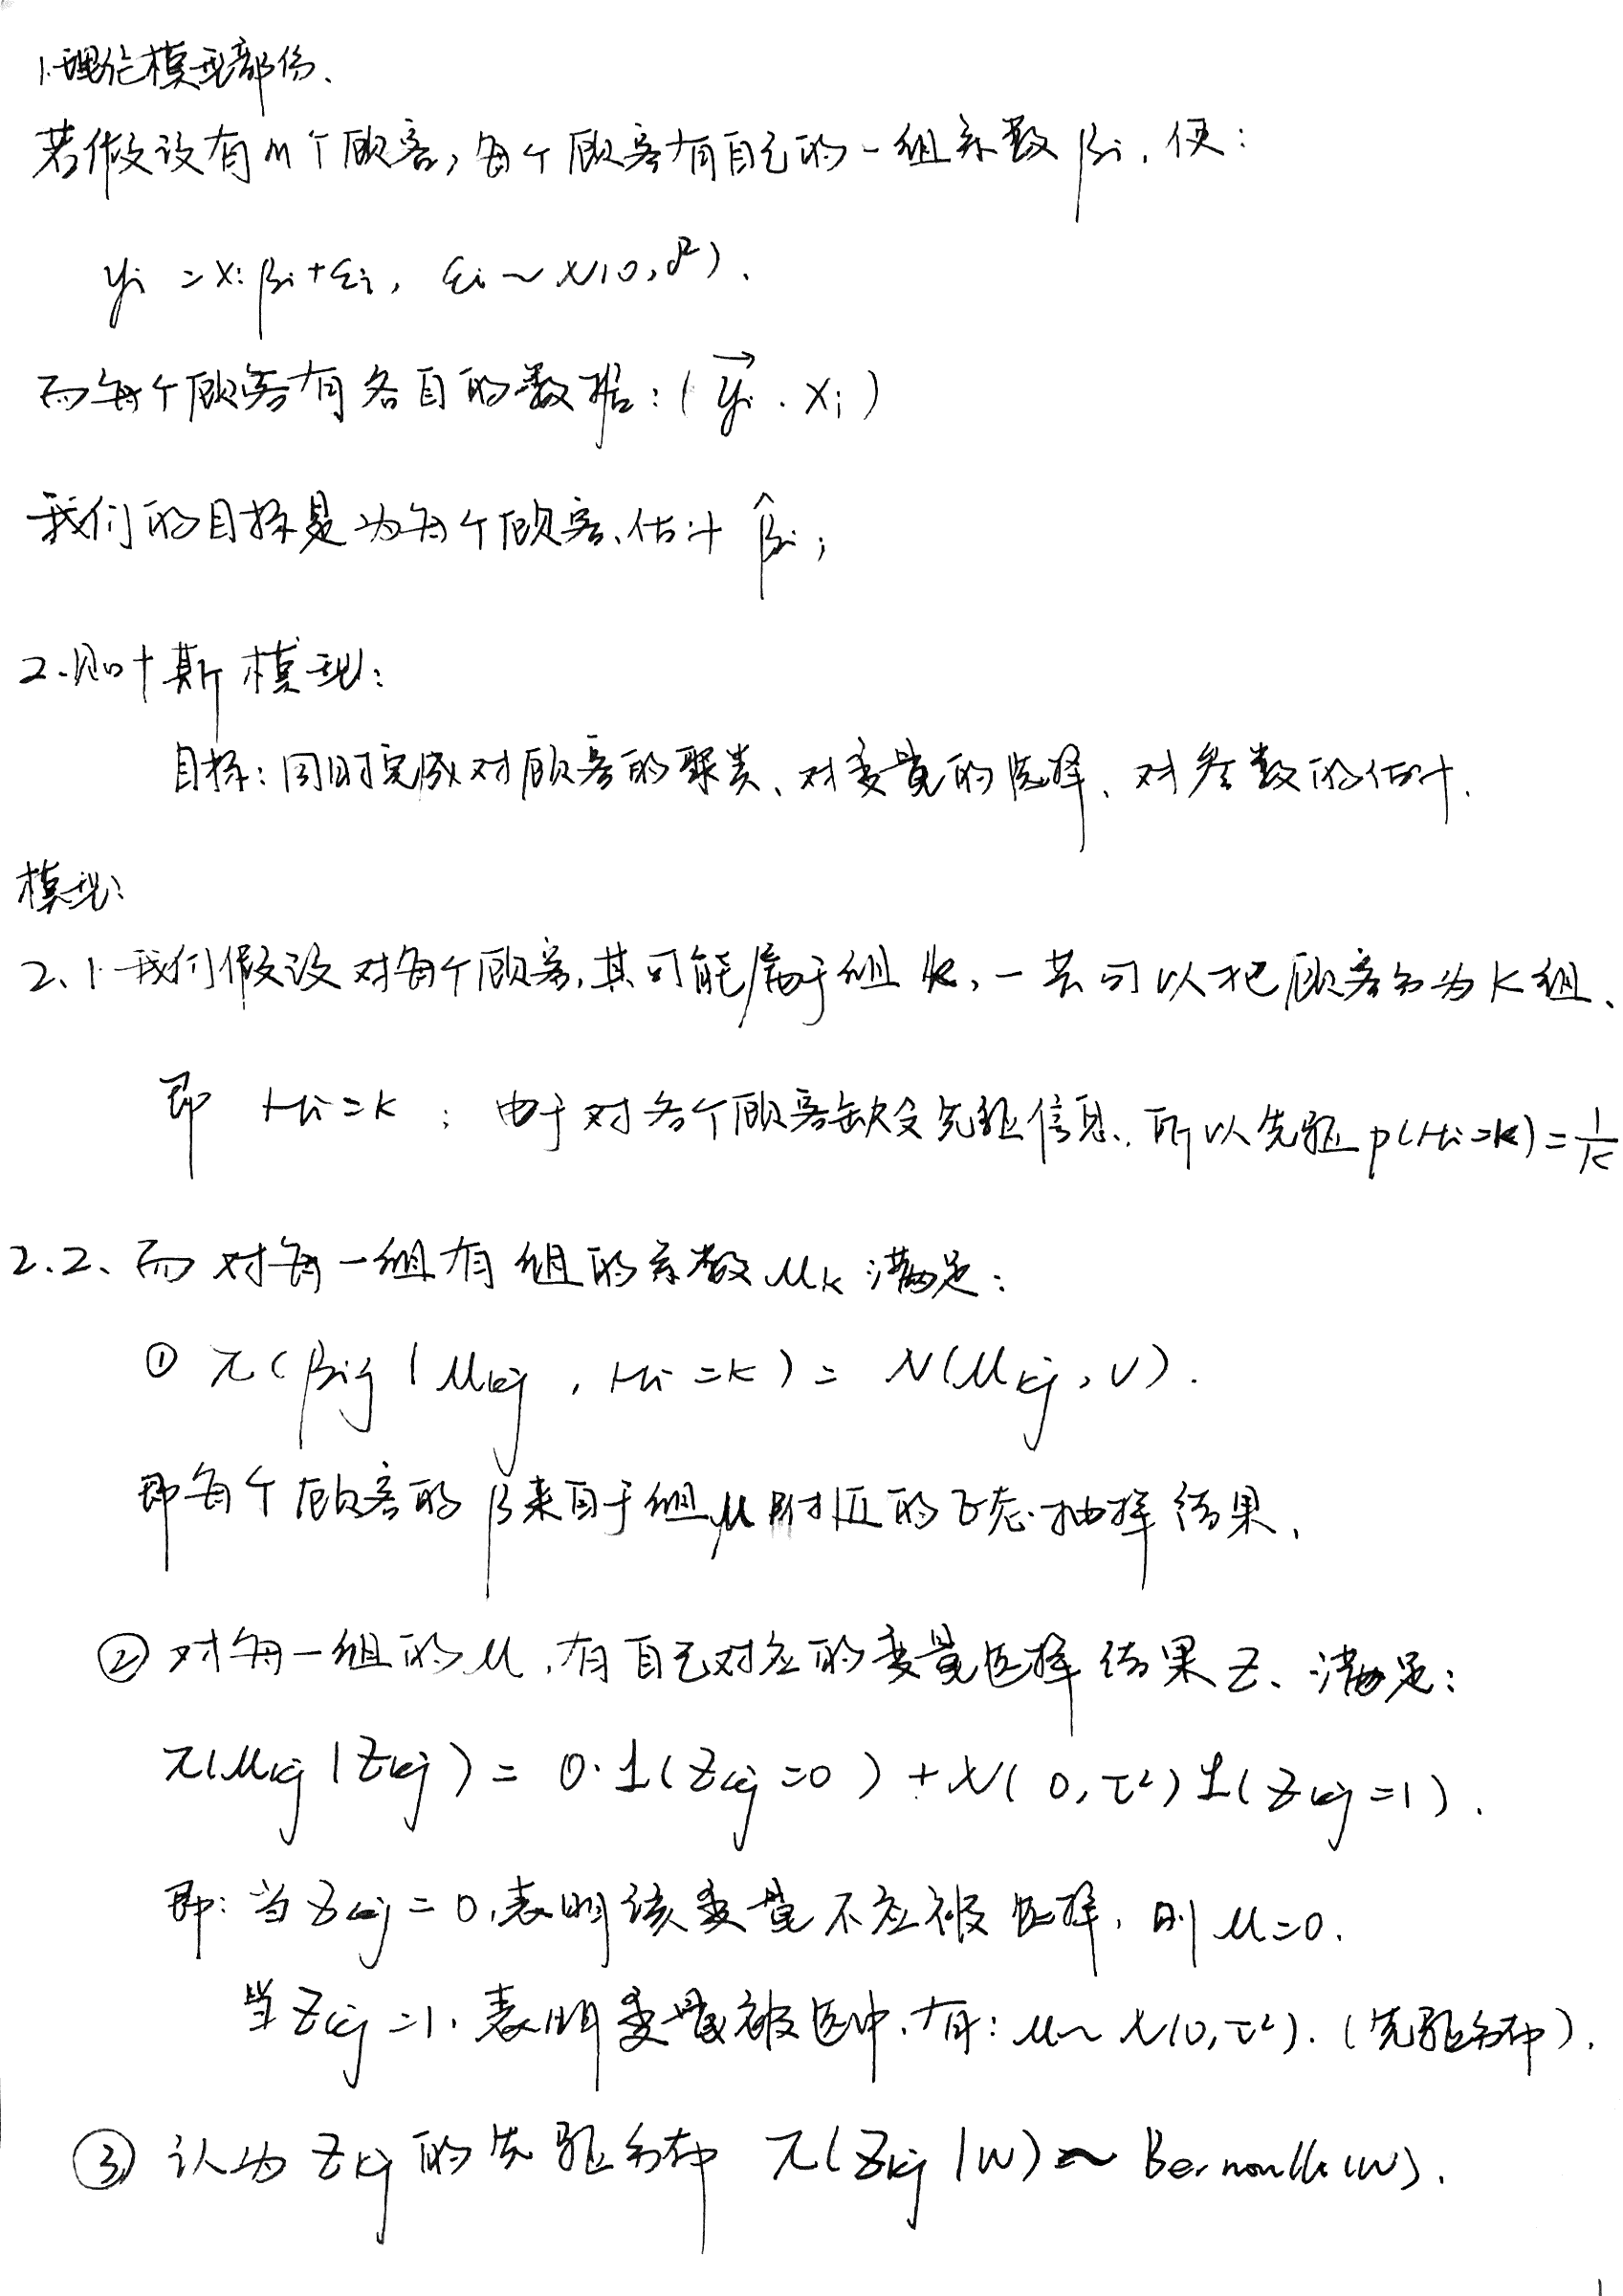 1.理论模型部份、
若假设有n个顾客,每个顾客有自己的一组系数βi,使:
yi = xiβi+εi, εi ~ N(0,σ²).
而每个顾客有各自的数据:(yi→. Xi)
我们的目标是为每个顾客、估计 β̂i;
2.贝叶斯模型:
目标:同时完成对顾客的聚类、对变量的选择、对参数的估计.
模型:
2.1.我们假设对每个顾客,其可能属于组k,一共可以把顾客分为K组、
即 Hi=k ; 由于对各个顾客缺乏先验信息,所以先验p(Hi=k)=1/K
2.2、而对每一组有组的系数μk满足:
① π(βij|μkj,Hi=k)= N(μkj,v).
即每个顾客的β来自于组μ附近的正态抽样结果、
② 对每一组的μ,有自己对应的变量选择结果Z、满足:
π(μkj|Zkj)= 0·1(Zkj=0)+N(0,τ²)1(Zkj=1).
即:当Zkj=0,表明该变量不应被选择,则μ=0.
当Zkj=1,表明变量被选中,有:μ~N(0,τ²).(先验分布).
③ 认为Zkj的先验分布 π(Zkj|w)~ Bernoulli(w).